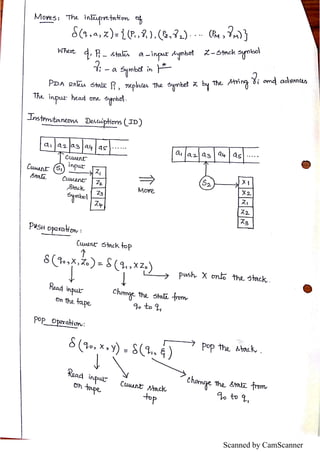 Moves: The interpretation of
δ(q, a, z) = {(P₁, γ₁), (P₂, γ₂) .... (Pₘ, γₘ)}
Where q, Pᵢ - states a - input symbol Z - stack symbol
γᵢ - a symbol in Γ*
PDA enters state Pᵢ, replaces the symbol Z by the string γᵢ and advances
the input head one symbol.
Instantaneous Description (ID)
a₁ a₂ a₃ a₄ a₅ ......
a₁ a₂ a₃ a₄ a₅ .....
Current input
Current State
S₁
Current Stack Symbol
Z₁
Z₂
Z₃
Z₄
⇒
Move
S₂
X₁
X₂
Z₁
Z₂
Z₃
PUSH operation:
Current Stack top
δ(q₀, x, Z₀) = δ(q₁, xZ₀)
push X onto the stack.
Read input on the tape
Change the state from q₀ to q₁
POP Operation:
δ(q₀, x, y) = δ(q₁, ξ)
pop the stack.
Read input on tape
Current stack top
Change the state from q₀ to q₁
Scanned by CamScanner